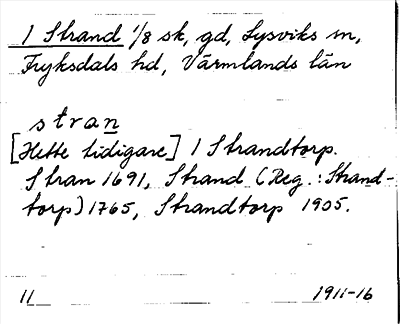 1 Strand 1/8 sk, gd, Lysviks sn,
Fryksdals hd, Värmlands län
stran
[Hette tidigare] 1 Strandtorp.
Stran 1691, Strand (Reg.: Strand-
torp) 1765, Strandtorp 1905.
11
1911-16